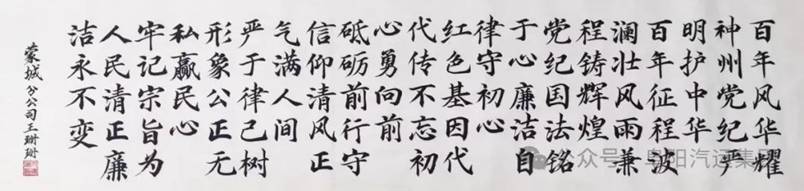 百年风华耀
神州党纪严
明护中华
百年征程波
澜壮风雨兼
程铸辉煌
党纪国法铭
于心廉洁自
律守初心
红色基因代
代传不忘初
心勇向前
砥砺前行守
信仰清风正
气满人间
严于律己树
形象公正无
私赢民心
牢记宗旨为
人民清正廉
洁永不变
蒙城分公司王珊珊
公众号 阜阳汽运集团